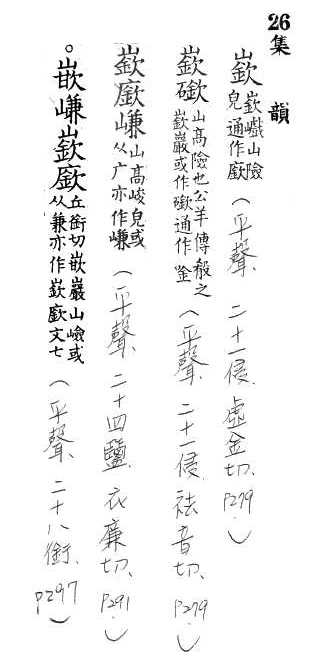 26集 韻
嶔 嶔巇山險皃通作廞（平聲、二十一侵、虛金切、P279.）
嶔礉 山高險也公羊傳殽之嶔巖或作礉通作崟（平聲、二十一侵、祛音切、P279.）
嶔廞嵰 山高峻皃或从广亦作嵰（平聲、二十四鹽、衣廉切、P291.）
。嵌嵰嶔廞 丘銜切嵌巖山嶮或从兼亦作嶔廞文七（平聲、二十八銜、P297）